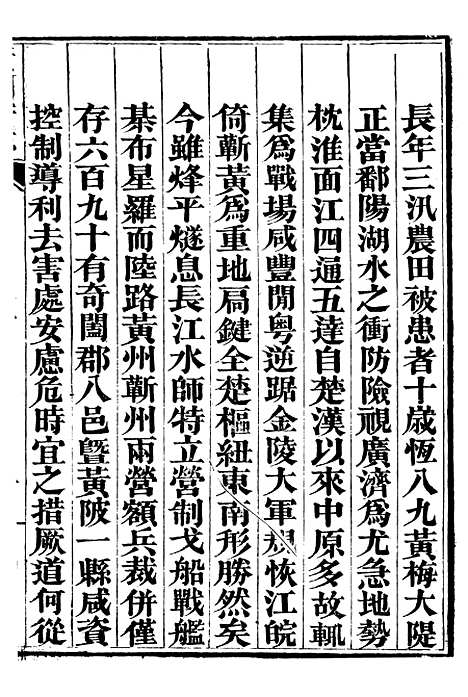 長年三汛農田被患者十歲恆八九黃梅大隄
正當鄱陽湖水之衝防險視廣濟爲尤急地勢
枕淮面江四通五達自楚漢以來中原多故輒
集爲戰場咸豐閒粵逆踞金陵大軍規恢江皖
倚蘄黃爲重地扃鍵全楚樞紐東南形勝然矣
今雖烽平燧息長江水師特立營制戈船戰艦
棊布星羅而陸路黃州蘄州兩營額兵裁併僅
存六百九十有奇闔郡八邑曁黃陂一縣咸資
控制導利去害處安慮危時宜之措厥道何從